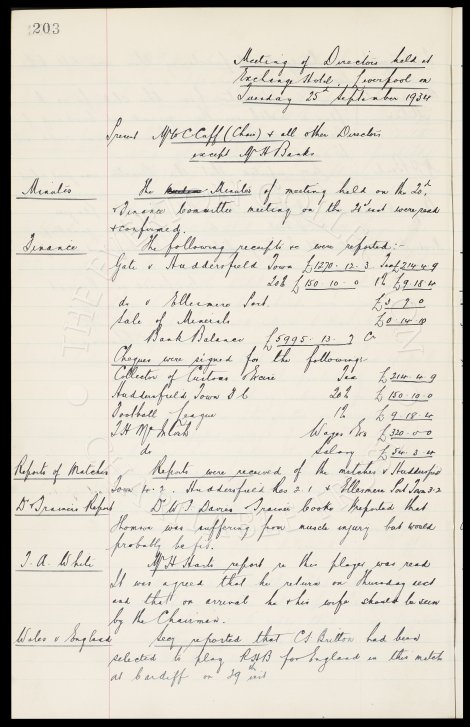 203
Meeting of Directors held at
Exchange Hotel, Liverpool on
Tuesday 25th September 1934
Present Mr W C Cuff (Chair) & all other Directors
except Mr H Banks
Minutes The Minutes of meeting held on the 20th
& Finance Committee meeting on the 21st inst were read
& confirmed.
Finance The following receipts &c were reported:-
Gate v Huddersfield Town £1270.12.3 Tax £214.4.9
20% £150.10.0 1% £9.18.4
do v Ellesmere Port £3.7.0
Sale of Minerals £0.14.10
Bank Balance £5995.13.7 Cr
Cheques were signed for the following:-
Collector of Customs & Excise Tax £214.4.9
Huddersfield Town F C 20% £150.10.0
Football League 1% £9.18.4
T. H. McIntosh Wages &c £320.0.0
do Salary £54.3.4
Reports of Matches Reports were received of the matches v Huddersfield
Town Huddersfield Res 2.1 & Ellesmere Port Town 3.2
Dr & Trainers Report Dr W T Davies & Trainer Cooke reported that
Thomson was suffering from muscle injury but would
probably be fit.
T. A. White Mr H Harts report re this player was read
It was agreed that he return on Thursday next
and that on arrival he & his wife should be seen
by the Chairman.
Wales v England Secy reported that C S Britton had been
selected to play R H B for England in this match
at Cardiff on 29th inst